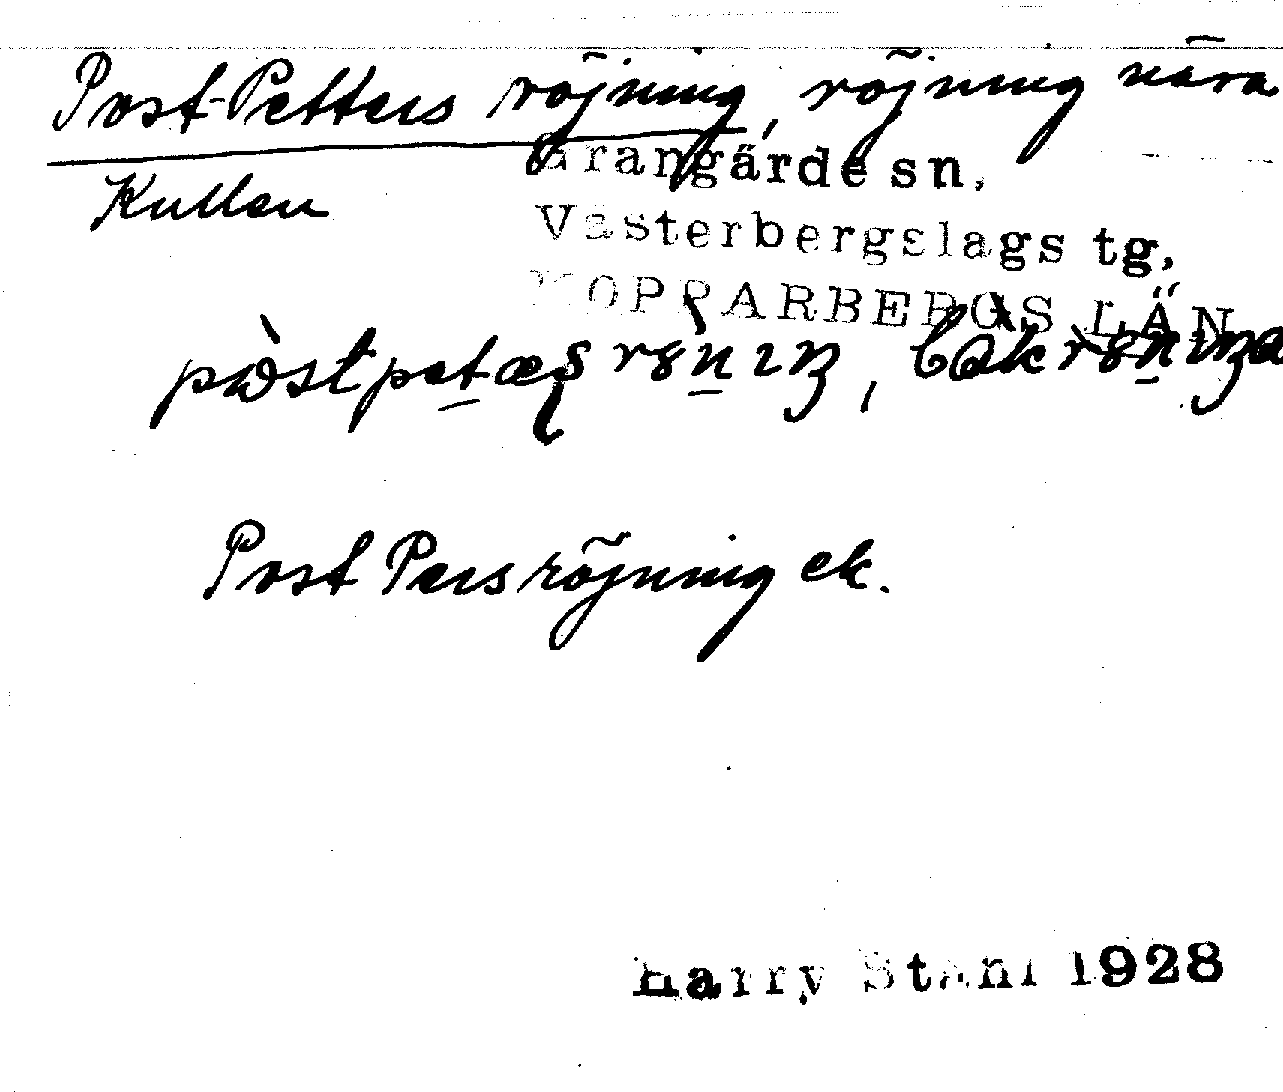 Post-Petters röjning, röjning nära
Kullen
Grangärde sn,
Västerbergslags tg,
KOPPARBERGS LÄN
Post Pers röjning ek.
Harry Ståhl 1928